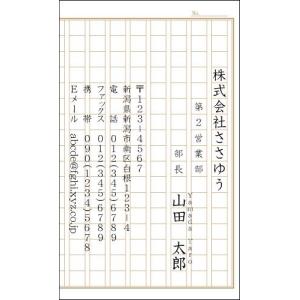 No.
株式会社ささゆう
第2営業部
部長
山田 太郎
Yamada Taro
〒123-4567
新潟県新潟市南区白根123-4
電話 012(345)6789
ファックス 012(345)6789
携帯 090(1234)5678
Eメール abcde@fghi.xyz.co.jp